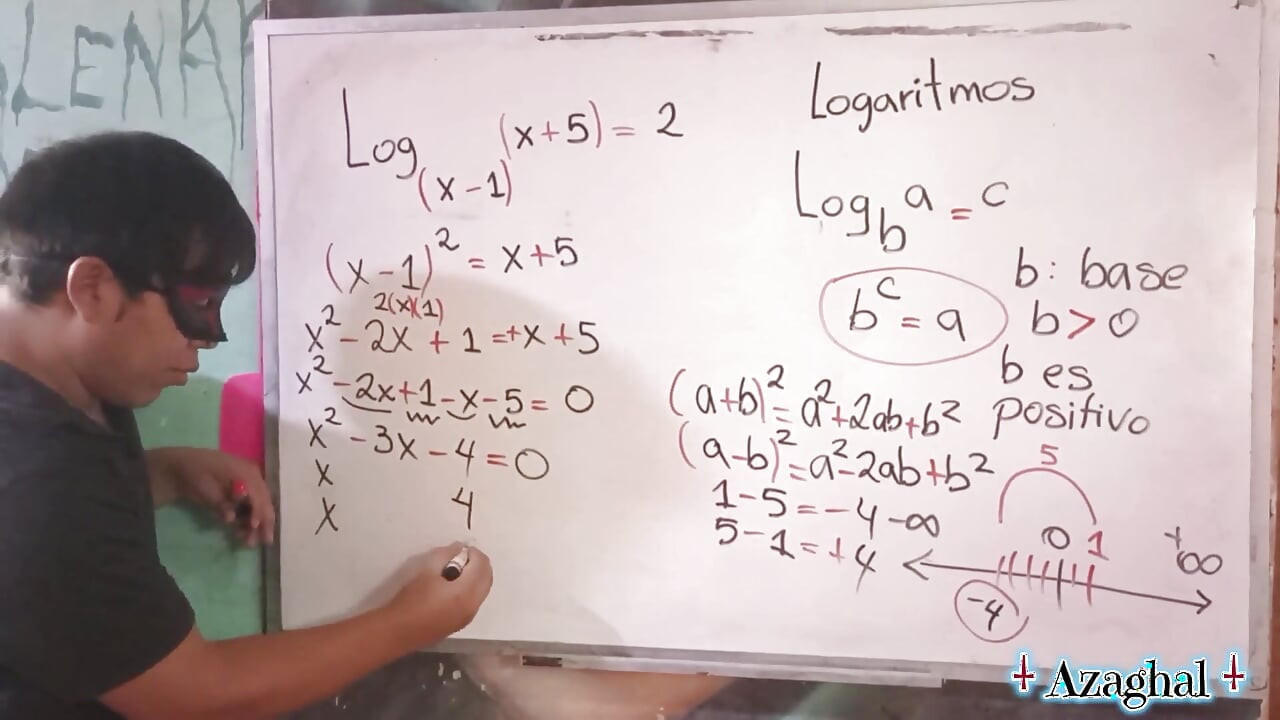 LENK
Log(x-1) (x+5) = 2
(x-1)² = x+5
2(x)(1)
x² - 2x + 1 =+x + 5
x² - 2x+1-x-5 = 0
x² - 3x - 4 = 0
x
x 4
Logaritmos
Log_b a = c
b^c = a
b: base
b > 0
b es
positivo
(a+b)² = a²+2ab+b²
(a-b)² = a²-2ab+b²
1-5 = -4
5-1 = +4
5
-∞ 0 1 +∞
-4
Azaghal